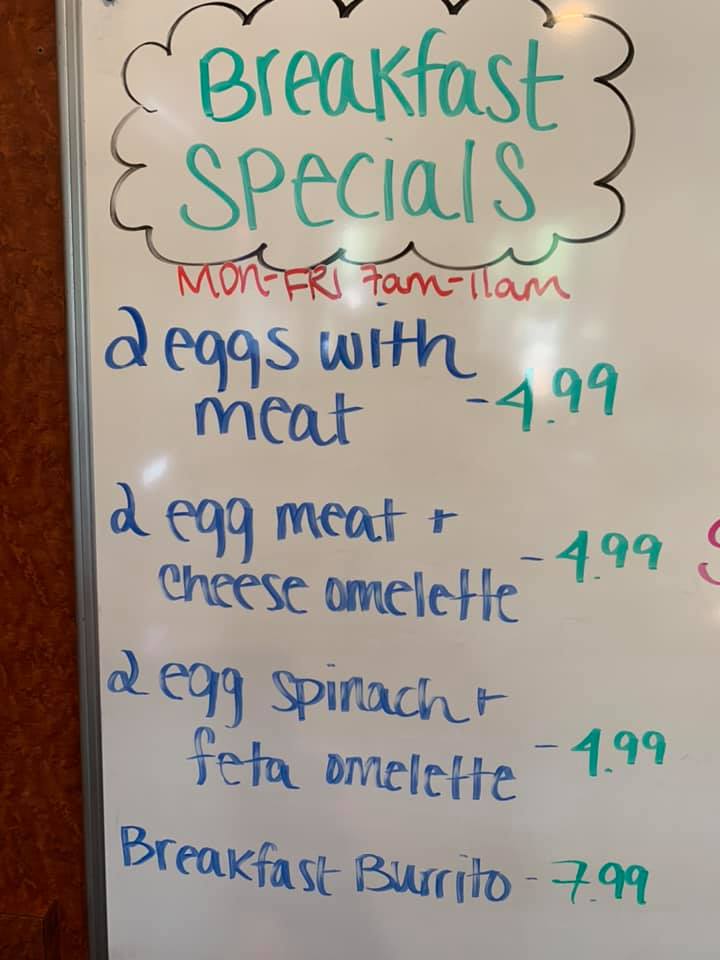 Breakfast
Specials
MON-FRI 7am-11am
2 eggs with
meat - 4.99
2 egg meat +
cheese omelette - 4.99
2 egg spinach +
feta omelette - 4.99
Breakfast Burrito - 7.99